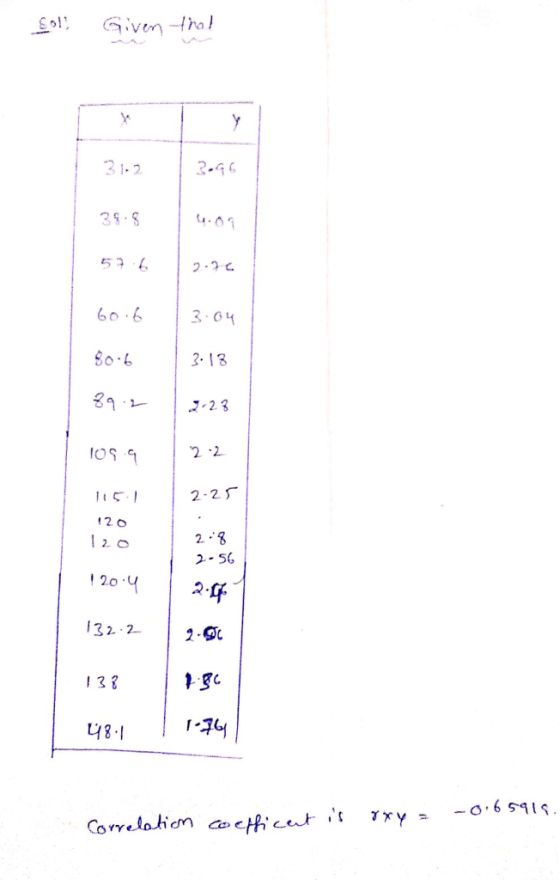 Sol: Given that
x y
31.2 3.96
38.8 4.09
57.6 2.76
60.6 3.04
80.6 3.18
89.2 2.28
109.9 2.2
115.1 2.25
120
120 2.8
2.56
120.4
132.2
138
48.1 1.76
Correlation coefficent is rxy = -0.65919.